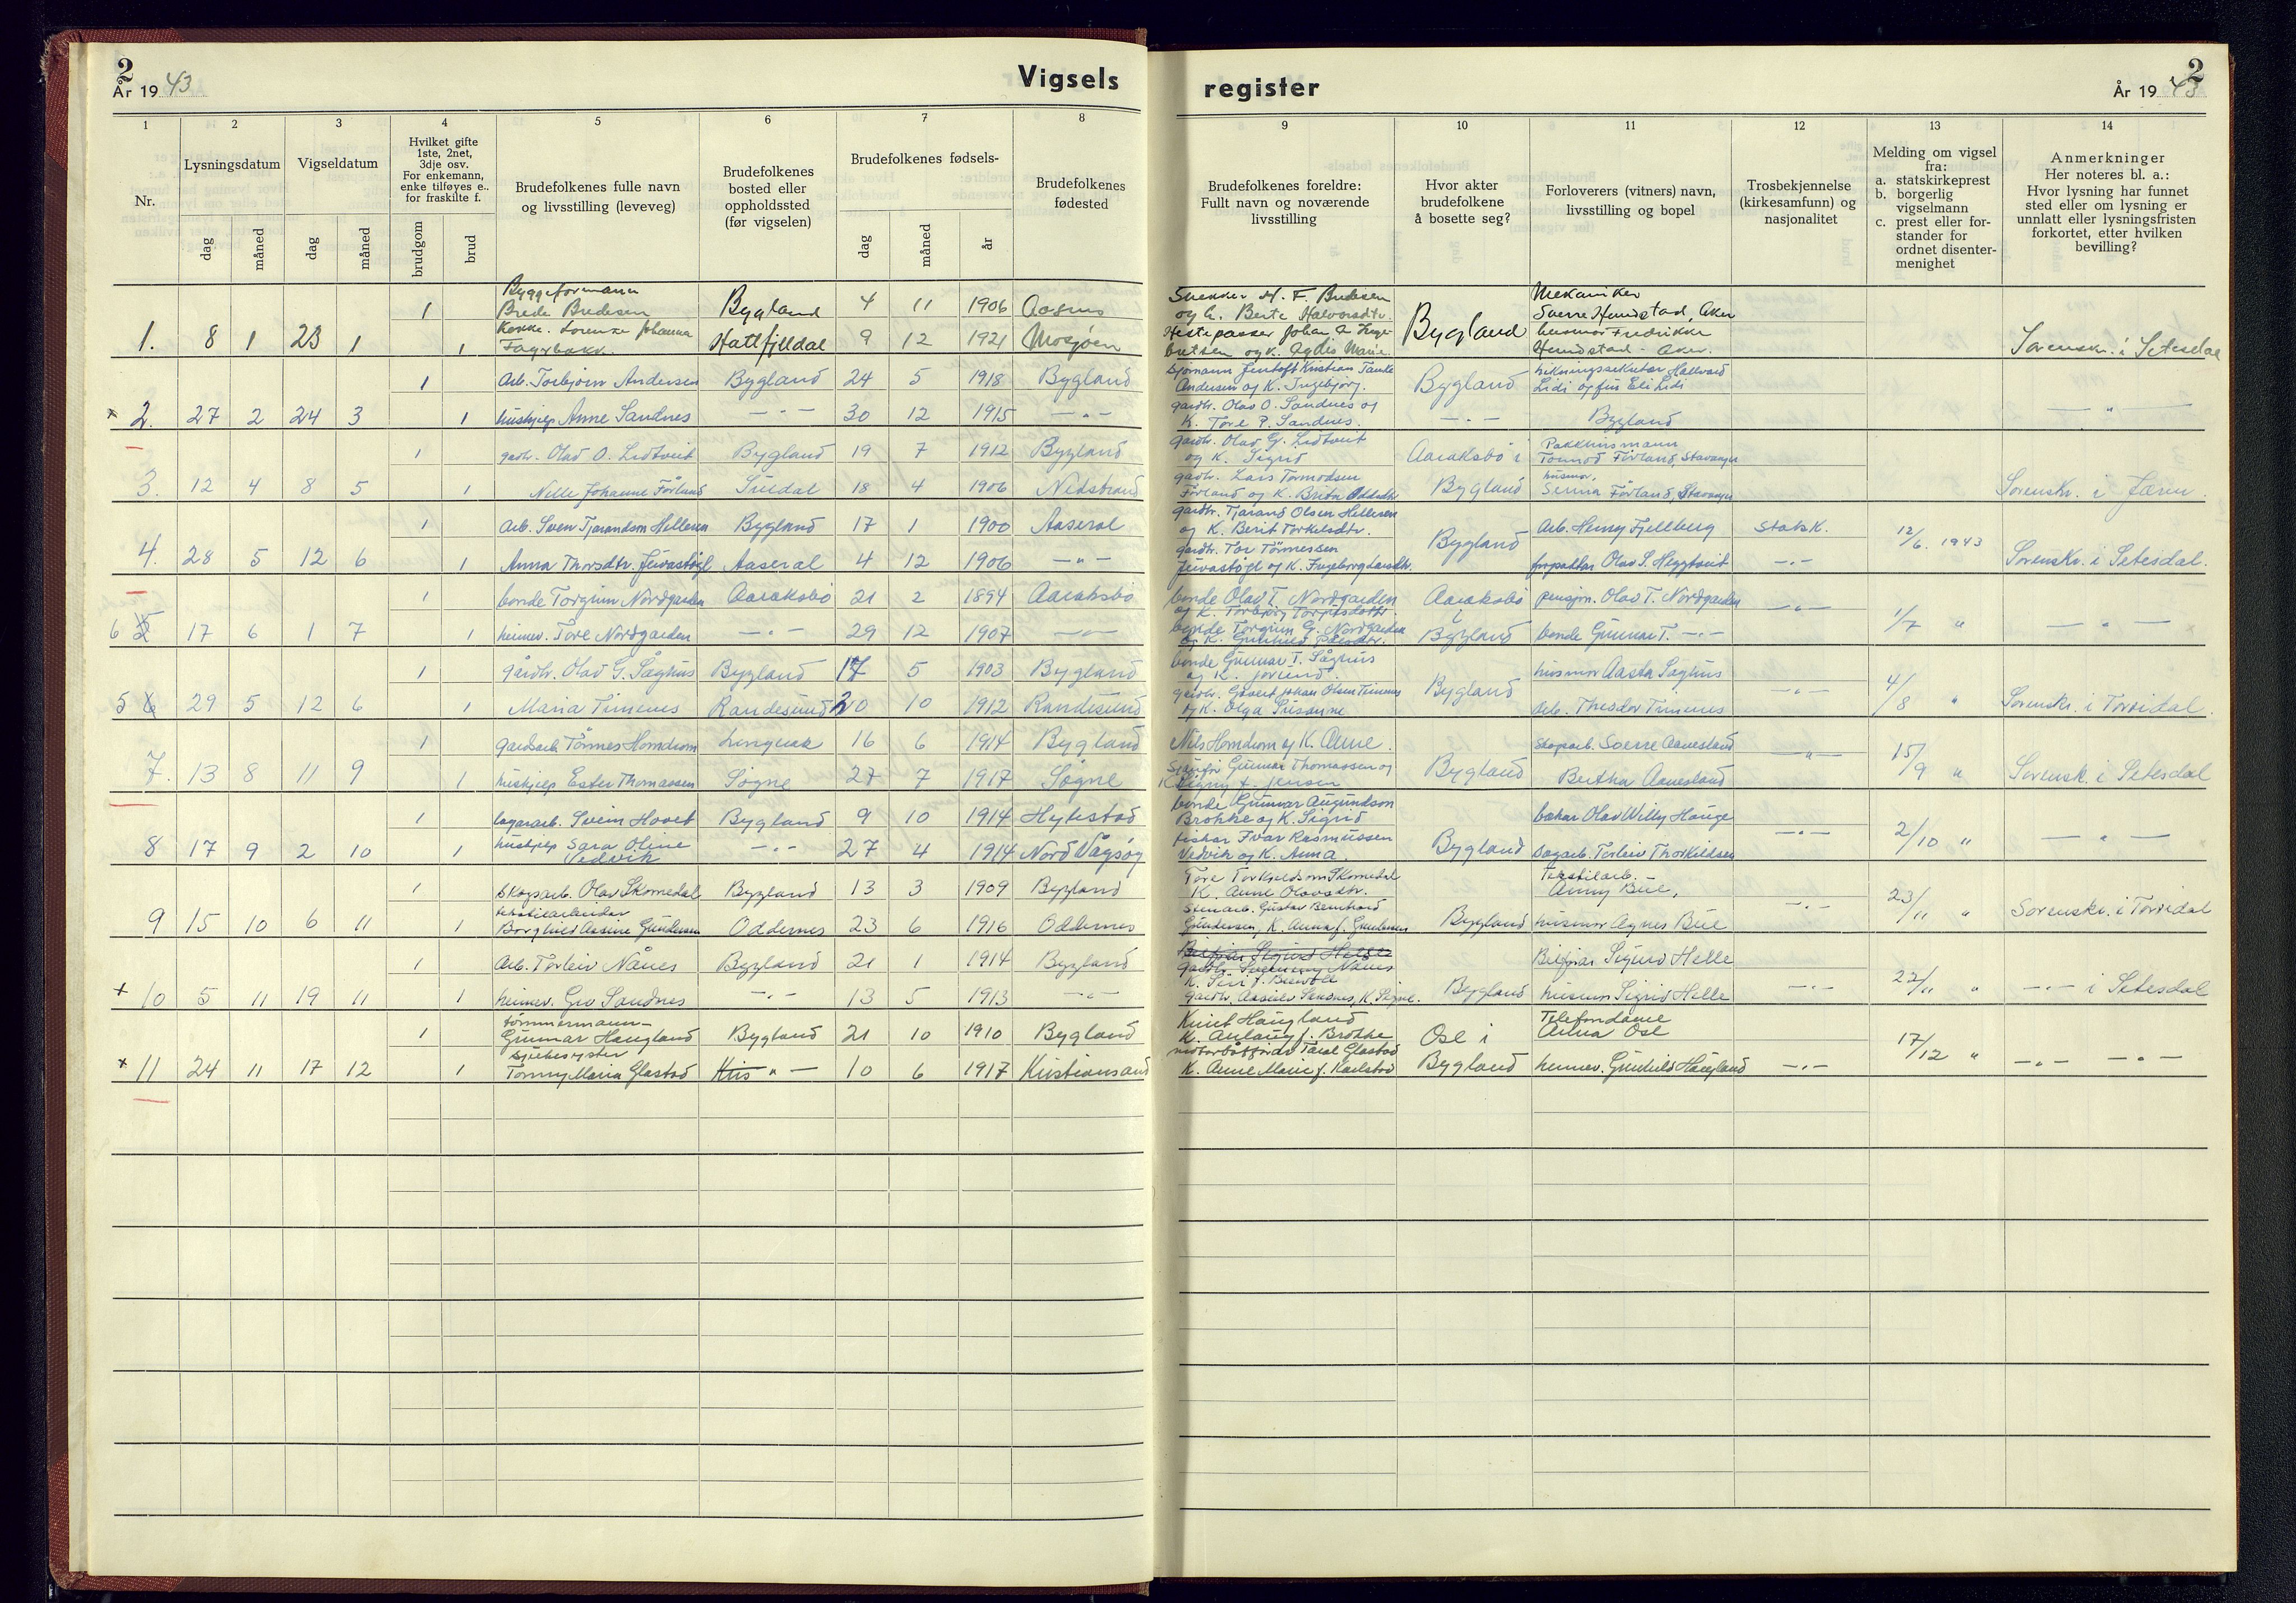 2
År 1943
Vigsels
1
2
3
4
5
6
7
8
Nr.
Lysningsdatum
Vigseldatum
Hvilket gifte
1ste, 2net,
3dje osv.
For enkemann,
enke tilføyes e..
for fraskilte f.
Brudefolkenes fulle navn
og livsstilling (leveveg)
Brudefolkenes
bosted eller
oppholdssted
(før vigselen)
Brudefolkenes fødsels-
Brudefolkenes
fødested
dag
måned
dag
måned
brudgom
brud
dag
måned
år
Byggeformann
1 Brede Bredesen Bygland 4 11 1906
Kokke. Lorense Johanna
1. 8 1 23 1 1 Hattfjelldal 9 12 1921 Mosjøen
1 Arb. Torbjørn Andersen Bygland 24 5 1918 Bygland
x 2. 27 2 24 3 1 hushjelp Anne Sandnes — " — 30 12 1915 — " —
1 gardbr. Olav O. Lidtveit Bygland 19 7 1912 Bygland
3. 12 4 8 5 1 Nelle Johanne Førland Suldal 18 4 1906 Nedstrand
1 Arb. Sven Tjarandson Hellesen Bygland 17 1 1900 Aaseral
4. 28 5 12 6 1 Anna Thorsdtr. Aaseral 4 12 1906 — " —
1 bonde Torgrim Nordgarden Aaraksbø 21 2 1894 Aaraksbø
6 5 17 6 1 7 1 heimev. Tore Nordgarden — " — 29 12 1907 — " —
1 gårdbr. Olav G. Såghus Bygland 17 5 1903 Bygland
5 6 29 5 12 6 1 Maria Timenes Randesund 20 10 1912 Randesund
1 gardsarb. Tønnes Homdrom 16 6 1914 Bygland
7. 13 8 11 9 1 hushjelp Ester Thomassen Søgne 27 7 1917 Søgne
1 lagerarb. Svein Hovet Bygland 9 10 1914 Hylestad
hushjelp Sara Oline
8 17 9 2 10 1 Vedvik — " — 27 4 1914 Nord Vågsøy
1 skogsarb. Olav Skomedal Bygland 13 3 1909 Bygland
tekstilarbeider
9 15 10 6 11 1 Borghild Aasine Gundersen Oddernes 23 6 1916 Oddernes
1 Arb. Torleiv Nånes Bygland 21 1 1914 Bygland
x 10 5 11 19 11 1 heimev. Gro Sandnes — " — 13 5 1913 — " —
tømmermann
1 Gunnar Haugland Bygland 21 10 1910 Bygland
sjukesyster
x 11 24 11 17 12 1 Tommy Maria Glastad Kris " — 10 6 1917 Kristiansand
register
År 1943
2
9
10
11
12
13
14
Brudefolkenes foreldre:
Fullt navn og noværende
livsstilling
Hvor akter
brudefolkene
å bosette seg?
Forloverers (vitners) navn,
livsstilling og bopel
Trosbekjennelse
(kirkesamfunn) og
nasjonalitet
Melding om vigsel
fra:
a. statskirkeprest
b. borgerlig
vigselmann
c. prest eller for-
stander for
ordnet disenter-
menighet
Anmerkninger
Her noteres bl. a.:
Hvor lysning har funnet
sted eller om lysning er
unnlatt eller lysningsfristen
forkortet, etter hvilken
bevilling?
Snekker H. F. Bredesen Mekaniker
og h. Berte Halvorsdtr. Sverre Hemstad, Aker
Hestepasser Johan Bygland husmor Fredrikke
og k. Marie Hemstad - Aker. Sorenskr. i Setesdal
Sjømann Jentoft Kristian Tanke
Andersen og K. Ingebjørg. Bygland Lidi og fru Eli Lidi
gardbr. Olav O. Sandnes og
K. Tore P. Sandnes. — " — Bygland — " —
gardbr. Olav G. Lidtveit Pakkhusmann
og K. Sigrid Aaraksbø i Tormod Førland, Stavanger
gardbr. Lars Tormodsen husmor,
Førland og K. Brita Bygland Førland, Stavanger Sorenskr. i Jæren.
gardbr. Tjarand Olsen Hellesen
og K. Berit Torkelsdtr. Bygland Arb. Henry Fjellberg Statsk. 12/6. 1943
gardbr. Tor Tønnessen
og K. Olav S. Heggtveit — " — Sorenskr. i Setesdal.
bonde Olav T. Nordgarden Aaraksbø pensjon. Olav T. Nordgarden
og K. Torbjørg — " — 1/7 "
bonde Torgrim G. Nordgarden i
og K. Gunhild Bygland bonde Gunnar T. — " — — " —
bonde Gunnar T. Såghus husmor Aasta Saghus
og K. Jorund.
gardbr. Johan Olsen Timenes Bygland — " — 4/8 "
og K. Olga Susanne Arb. Theodor Timenes Sorenskr. i Torridal.
Nils Homdrom og K. Anne. Sverre Aanesland — " — 15/9 "
Gunnar Thomassen og Bygland Bertha Aanesland Sorensk. i Setesdal
K. Signy f. Jensen
bonde Gunnar Augundson
Brokke og K. Sigrid baker Olav Willy Hauge
fisker Ivar Rasmussen Bygland — " — 2/10 " — " —
Vedvik og K. Anna. Torleiv Thorkildsen
Tore Torkjeldson Skomedal Tekstilarb.
K. Anne Olavsdtr. Anny Bue,
Stenarb. Gustav Bernhard — " — 23/11 "
Gundersen, K. Anna f. Bygland husmor Agnes Bue Sorenskr. i Torridal
Bilfjar Sigurd Helle Bilfjar Sigurd Helle
gardbr. Nånes
K. Siri f. — " — 22/11 "
gardbr. Sandnes, K. Signe. Bygland husmor Sigrid Helle — " — i Setesdal
Knut Haugland Telefondame
K. Anlaug f. Brokke Ose i Anna Ose
Tarald Glastad 17/12 "
K. Anne Marie f. Karlstad Bygland heimev. Gunhild Haugland — " — — " — — " —